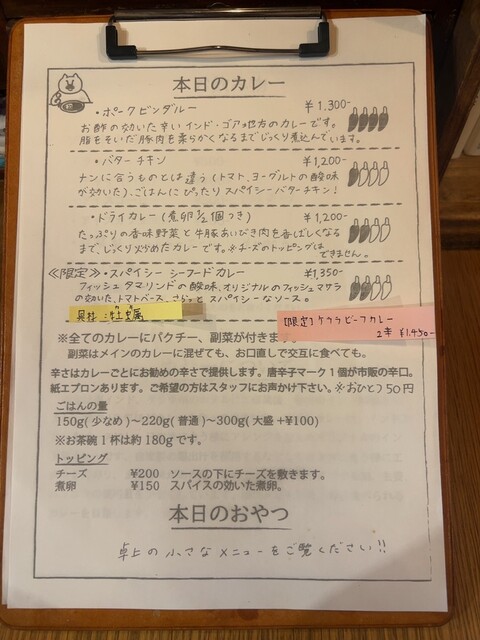 本日のカレー
・ポークビンダルー ¥1,300-
お酢の効いた辛いインド・ゴア地方のカレーです。
脂をそいだ豚肉を柔らかくなるまでじっくり煮込んでいます。
・バターチキン ¥1,200-
ナンに合うものとは違う(トマト、ヨーグルトの酸味
が効いた)、ごはんにぴったりスパイシーバターチキン!
・ドライカレー(煮卵½個つき) ¥1,200-
たっぷりの香味野菜と牛豚あいびき肉を香ばしくなる
まで、じっくり炒めたカレーです。※チーズのトッピングは
できません。
≪限定≫・スパイシーシーフードカレー ¥1,350-
フィッシュタマリンドの酸味、オリジナルのフィッシュマサラ
の効いた、トマトベース、さらっとスパイシーなソース。
具材:牡蠣
[限定]ケララビーフカレー
2辛 ¥1,450-
※全てのカレーにパクチー、副菜が付きます。
副菜はメインのカレーに混ぜても、お口直しで交互に食べても。
辛さはカレーごとにお勧めの辛さで提供します。唐辛子マーク1個が市販の辛口。
紙エプロンあります。ご希望の方はスタッフにお声かけ下さい。※おひとつ50円
ごはんの量
150g(少なめ)~220g(普通)~300g(大盛+¥100)
※お茶碗1杯は約180gです。
トッピング
チーズ ¥200 ソースの下にチーズを敷きます。
煮卵 ¥150 スパイスの効いた煮卵。
本日のおやつ
卓上の小さなメニューをご覧ください!!